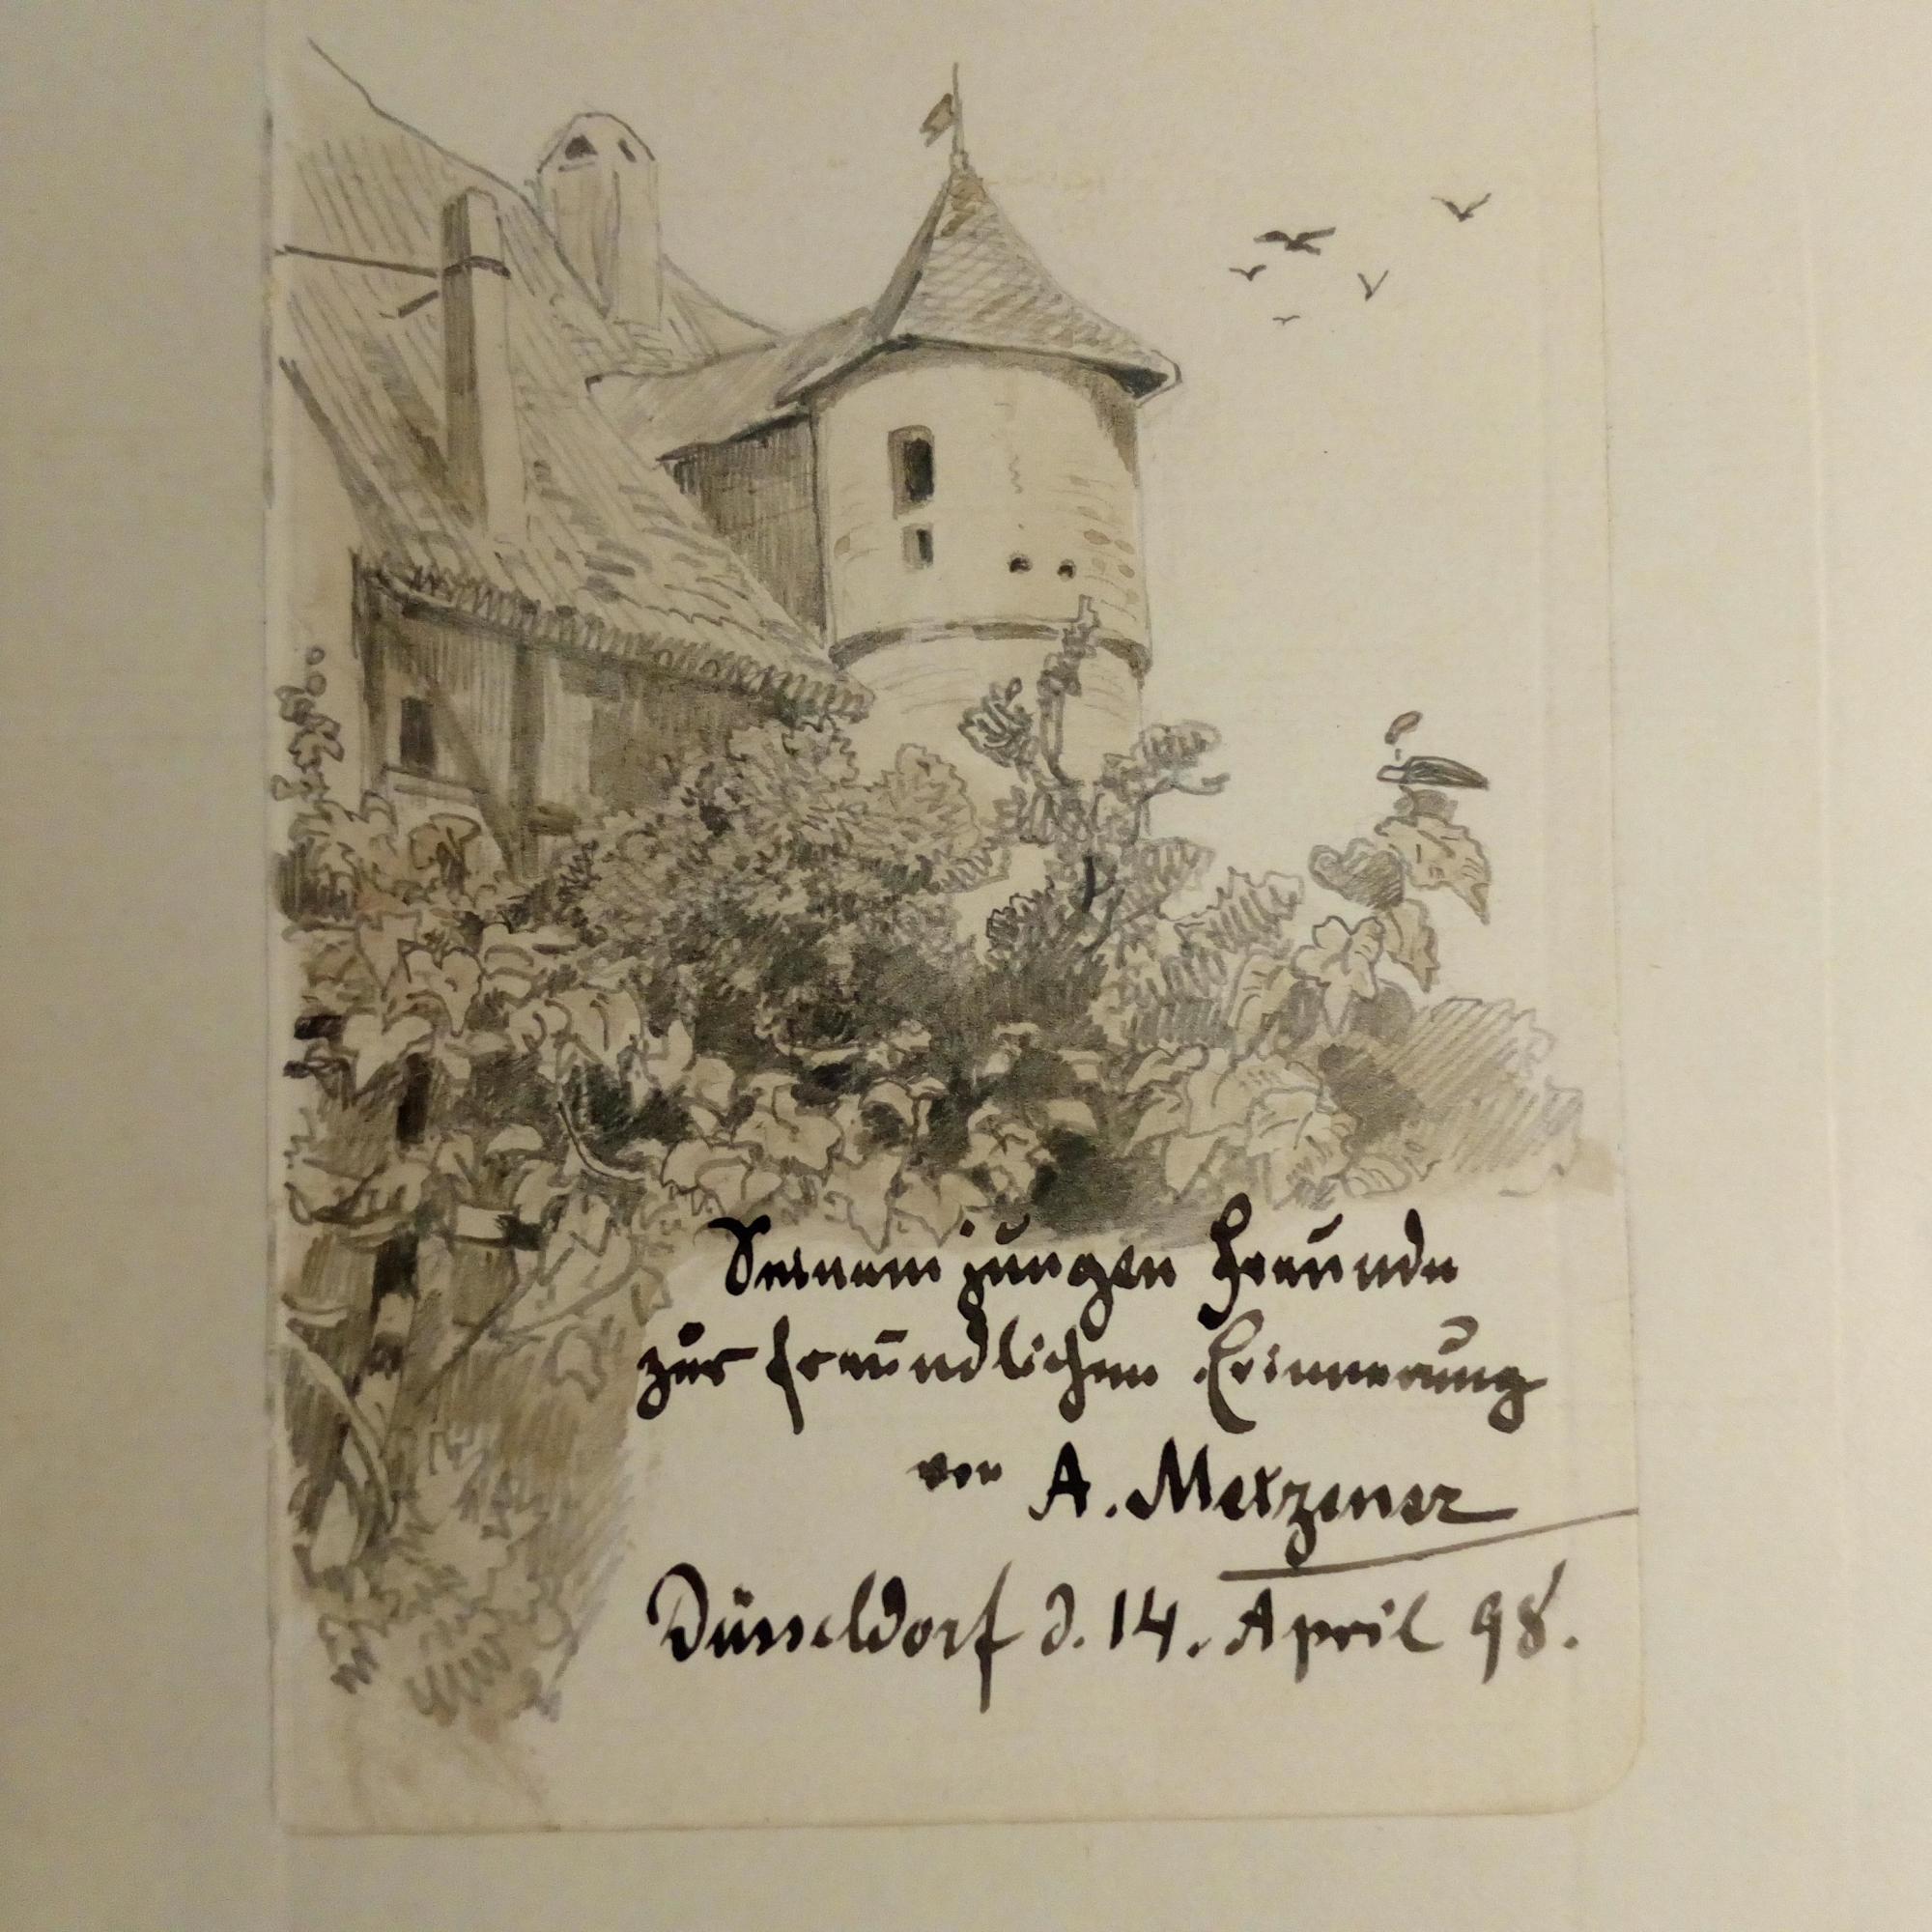 Seinem jungen Freunde
zur freundlichen Erinnerung
von A. Metzener
Düsseldorf d. 14. April 98.